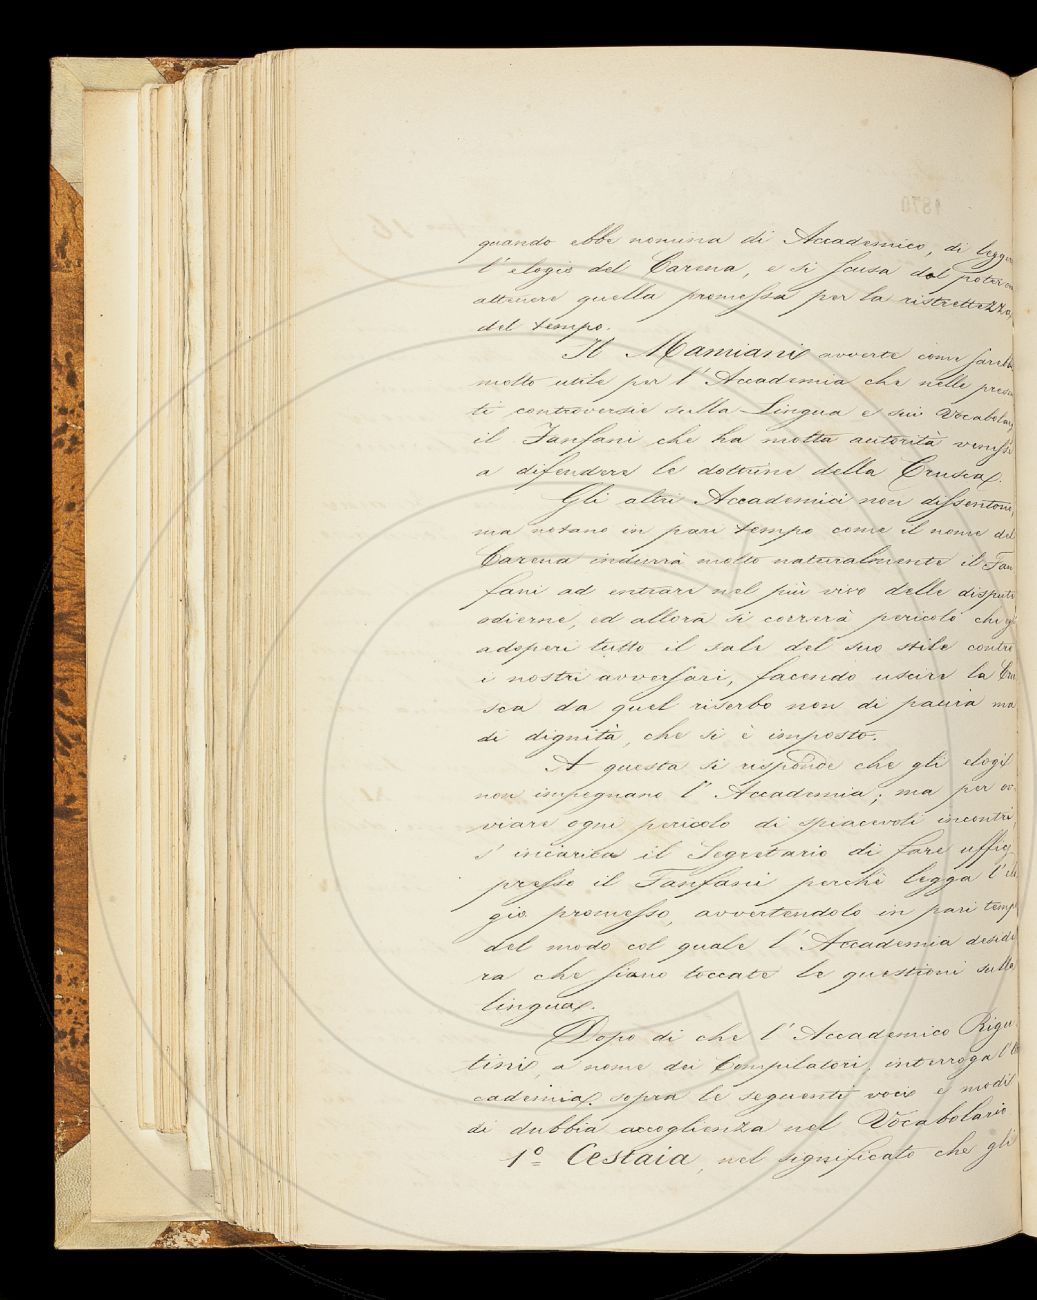 quando ebbe nomina di Accademico, di legger
l' elogio del Carena, e si scusa dal poter
attenere quella promessa per la ristrettezza
del tempo.
Il Mamiani avverte come sarebb
molto utile per l' Accademia che nelle presen
ti controversie sulla Lingua e sui Vocabolarj
il Fanfani che ha molta autorità venisse
a difendere le dottrine della Crusca.
Gli altri Accademici non dissentono,
ma notano in pari tempo come il nome del
Carena indurrà molto naturalmente il Fan
fani ad entrare nel più vivo delle dispute
odierne, ed allora si correrà pericolo che
adoperi tutto il sale del suo stile contro
i nostri avversari, facendo uscire la Cru
sca da quel riserbo non di paura ma
di dignità, che si è imposto.
A questa si risponde che gli elogi
non impegnano l' Accademia; ma per ov
viare ogni pericolo di spiacevoli incontri,
s' incarica il Segretario di fare ufficj
presso il Fanfani perchè legga l' elo
gio promesso, avvertendolo in pari temp
del modo col quale l' Accademia deside
ra che siano toccate le questioni sulla
lingua.
Dopo di che l' Accademico Rigu
tini, a nome dei Compilatori, interroga l' Ac
cademia sopra le seguenti voci e modi
di dubbia accoglienza nel Vocabolario
1º Cestaia, nel significato che gli
1870